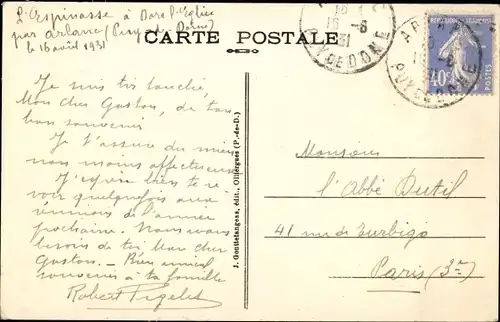 L'Espinasse à Dore l'Eglise
par Arlanc (Puy de Dôme)
le 16 août 1931
CARTE POSTALE
Je suis très touché,
Mon cher Gaston, de ton
bon souvenir
Je t'assure du mien
non moins affectueux
J'espère bien te re
voir quelquefois aux
réunions de l'année
prochaine. Nous avons
besoin de toi Mon cher
Gaston. - Bien amical
souvenir à ta famille
Robert
J. Gouttefangeas, édit., Olliergues (P.-de-D.)
16
31
PUY DE DOME
REPUBLIQUE FRANÇAISE
40c
POSTES
PUY DE DOME
Monsieur
l'Abbé Dutil
41 rue de Turbigo
Paris (3e)